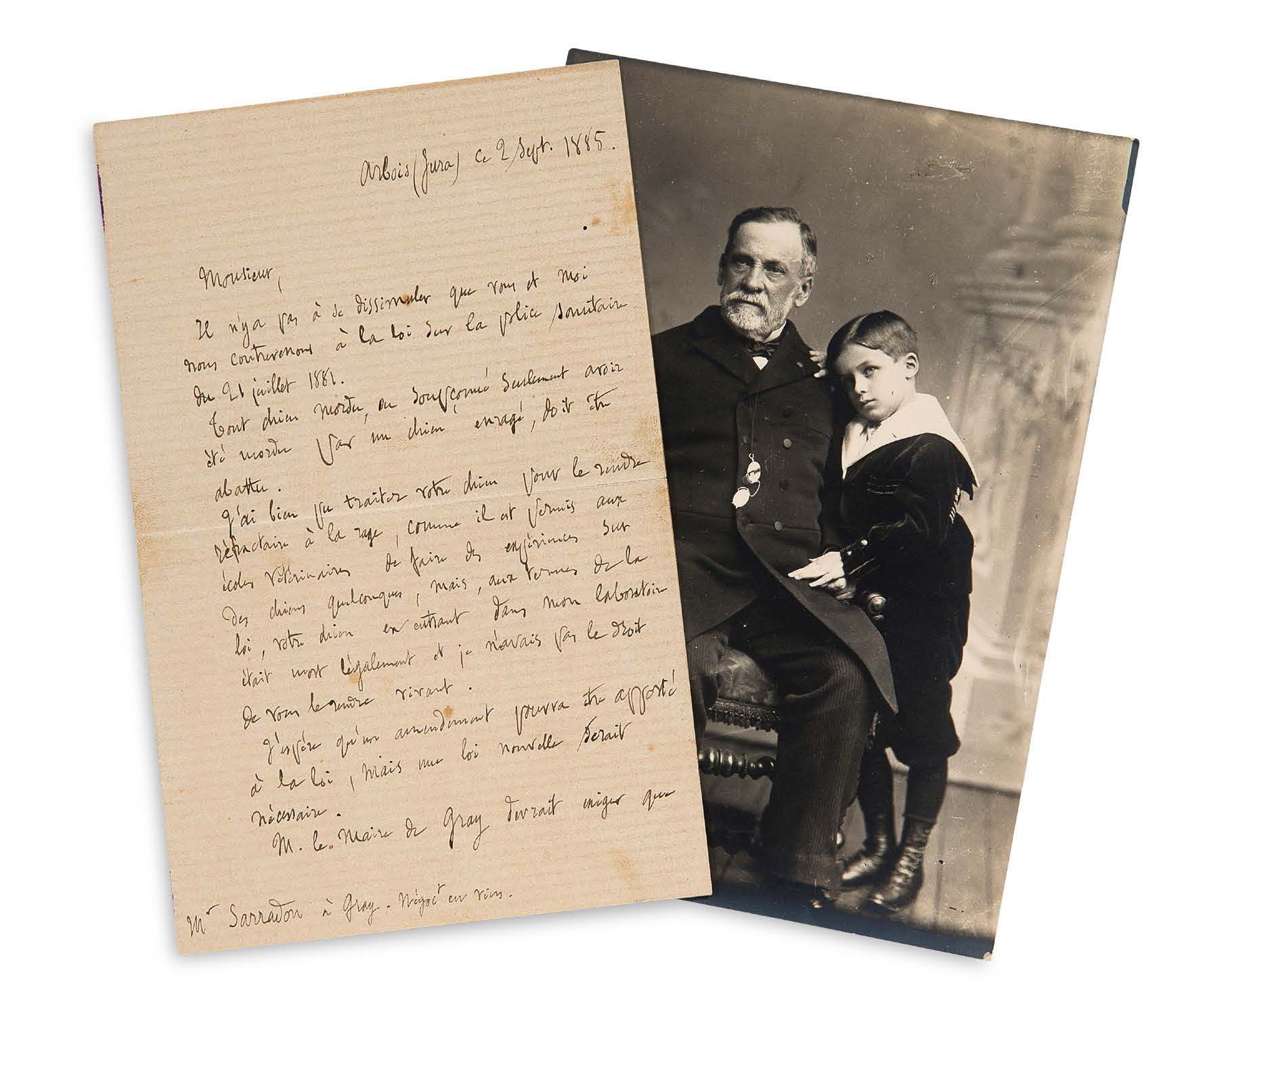 Arbois (Jura) ce 2 Sept. 1885.
Monsieur,
Il n'y a pas à se dissimuler que vous et moi
nous contrevenons à la loi sur la police sanitaire
du 21 juillet 1881.
Tout chien mordu, ou soupçonné seulement avoir
été mordu par un chien enragé, doit être
abattu.
J'ai bien pu traiter votre chien pour le rendre
réfractaire à la rage, comme il est permis aux
écoles vétérinaires de faire des expériences sur
des chiens quelconques, mais, aux termes de la
loi, votre chien en entrant dans mon laboratoire
était mort légalement et je n'avais pas le droit
de vous le rendre vivant.
J'espère qu'un amendement pourra être apporté
à la loi, mais une loi nouvelle serait
nécessaire.
M. le Maire de Gray devrait exiger que
Mr Sarradon à Gray. Négoct en vins.